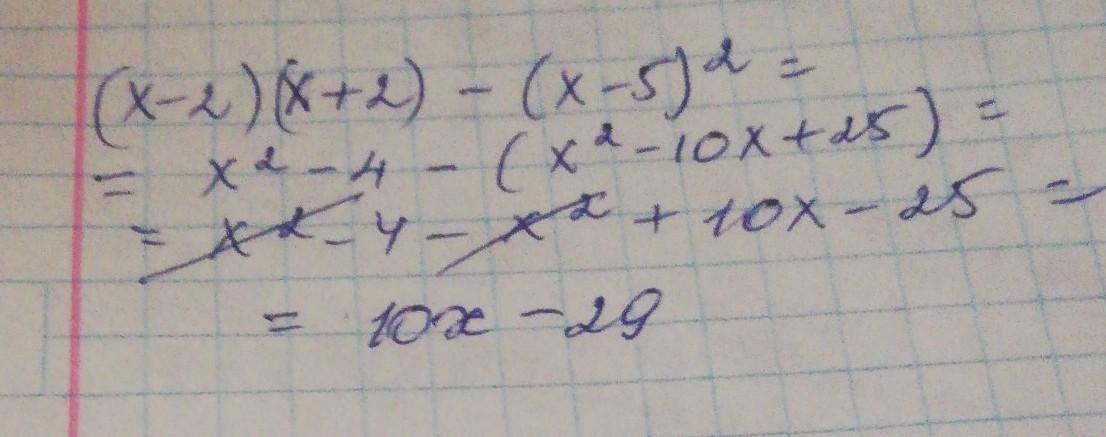 (x-2)(x+2) - (x-5)² =
= x² - 4 - (x² - 10x + 25) =
= x² - 4 - x² + 10x - 25 =
= 10x - 29